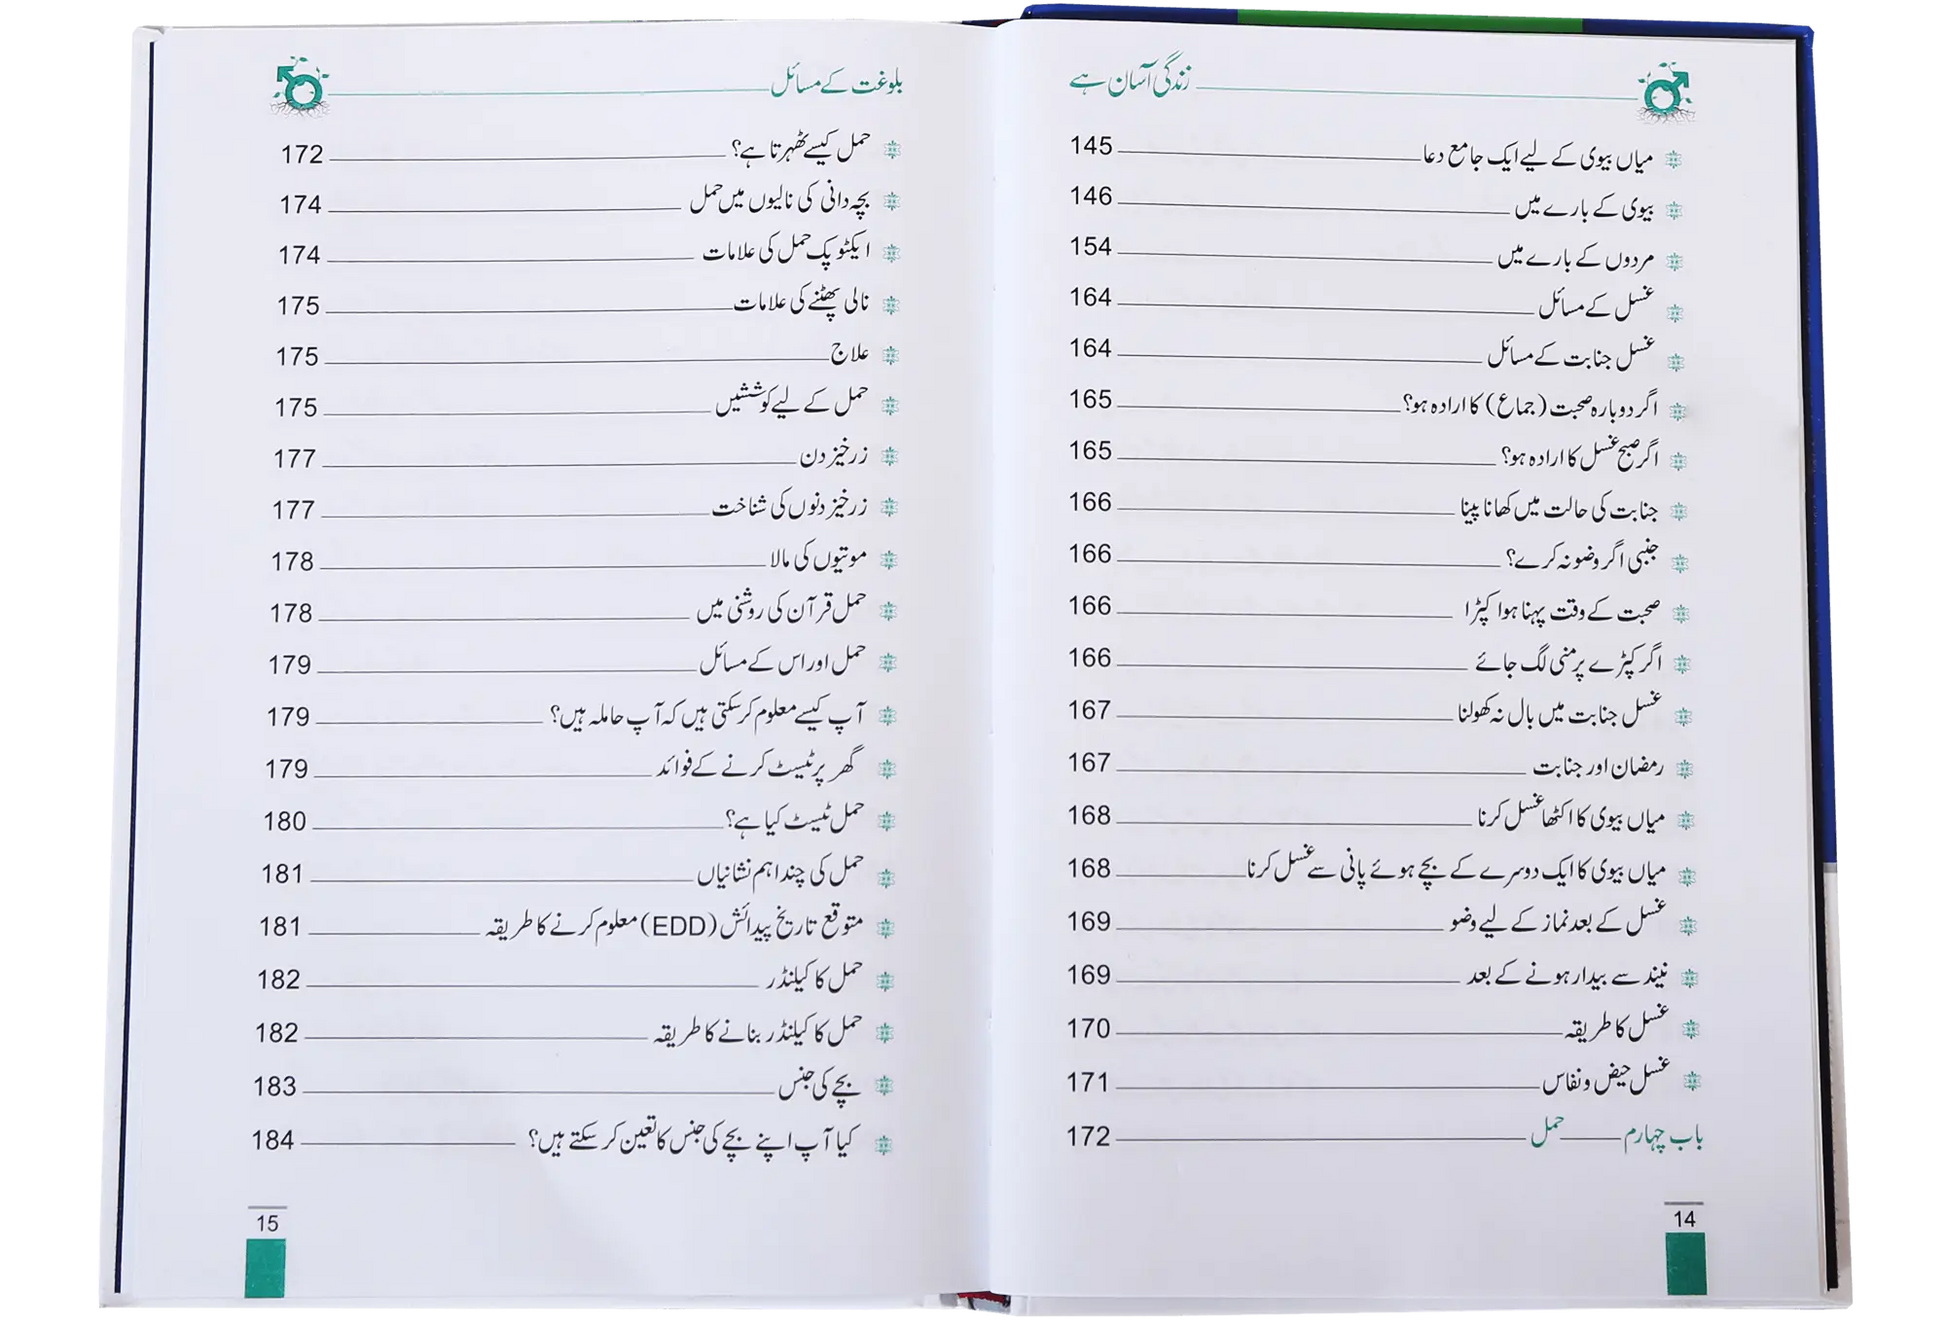 زندگی آسان ہے
میاں بیوی کے لیے ایک جامع دعا 145
بیوی کے بارے میں 146
مردوں کے بارے میں 154
غسل کے مسائل 164
غسل جنابت کے مسائل 164
اگر دوبارہ صحبت (جماع) کا ارادہ ہو؟ 165
اگر صبح غسل کا ارادہ ہو؟ 165
جنابت کی حالت میں کھانا پینا 166
جنبی اگر وضو نہ کرے؟ 166
صحبت کے وقت پہنا ہوا کپڑا 166
اگر کپڑے پر منی لگ جائے 166
غسل جنابت میں بال نہ کھولنا 167
رمضان اور جنابت 167
میاں بیوی کا اکٹھا غسل کرنا 168
میاں بیوی کا ایک دوسرے کے بچے ہوئے پانی سے غسل کرنا 168
غسل کے بعد نماز کے لیے وضو 169
نیند سے بیدار ہونے کے بعد 169
غسل کا طریقہ 170
غسل حیض و نفاس 171
باب چہارم حمل 172
14
بلوغت کے مسائل
حمل کیسے ٹھہرتا ہے؟ 172
بچہ دانی کی نالیوں میں حمل 174
ایکٹوپک حمل کی علامات 174
نالی پھٹنے کی علامات 175
علاج 175
حمل کے لیے کوششیں 175
زرخیز دن 177
زرخیز دنوں کی شناخت 177
موتیوں کی مالا 178
حمل قرآن کی روشنی میں 178
حمل اور اس کے مسائل 179
آپ کیسے معلوم کرسکتی ہیں کہ آپ حاملہ ہیں؟ 179
گھر پر ٹیسٹ کرنے کے فوائد 179
حمل ٹیسٹ کیا ہے؟ 180
حمل کی چند اہم نشانیاں 181
متوقع تاریخ پیدائش (EDD) معلوم کرنے کا طریقہ 181
حمل کا کیلنڈر 182
حمل کا کیلنڈر بنانے کا طریقہ 182
بچے کی جنس 183
کیا آپ اپنے بچے کی جنس کا تعین کرسکتے ہیں؟ 184
15